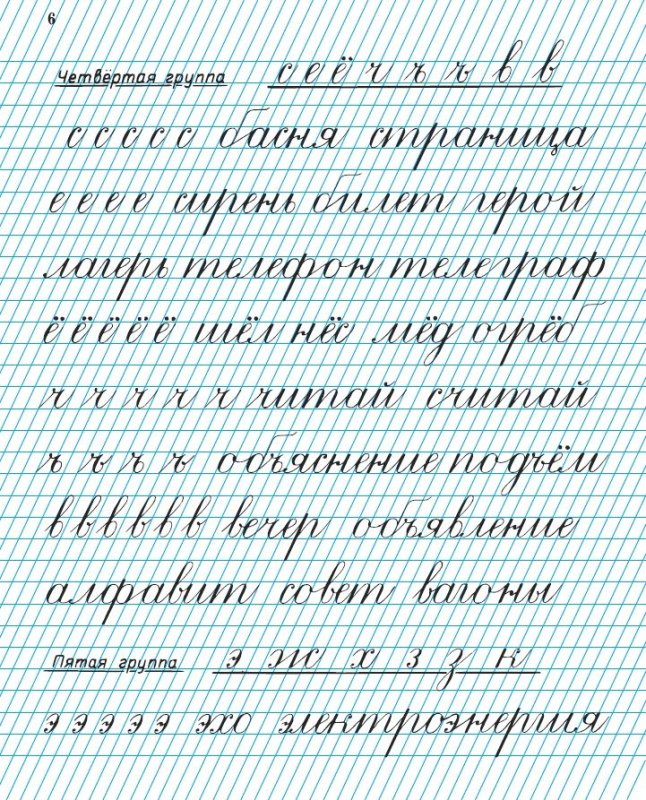 6
Четвёртая группа с е ё ч ъ ъ в в
с с с с с басня страница
е е е е сирень билет герой
лагерь телефон телеграф
ё ё ё ё ё шёл нёс мёд огрёб
ч ч ч ч ч читай считай
ъ ъ ъ ъ объяснение подъём
в в в в в в вечер объявление
алфавит совет вагоны
Пятая группа э ж х з з к
э э э э э эхо электроэнергия